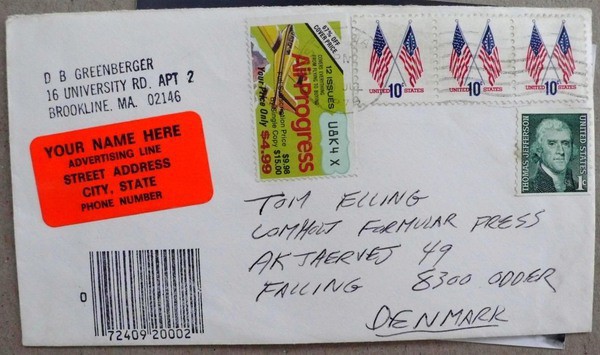 D B GREENBERGER
16 UNIVERSITY RD. APT 2
BROOKLINE. MA. 02146
YOUR NAME HERE
ADVERTISING LINE
STREET ADDRESS
CITY, STATE
PHONE NUMBER
67% OFF
COVER PRICE
12 ISSUES
Air Progress
UBK4X
Price $9.98
Single Copy $15.00
Your Price Only $4.99
UNITED STATES 10c
UNITED STATES 10c
UNITED STATES 10c
THOMAS JEFFERSON
UNITED STATES
1c
TOM ELLING
FORMULAR PRESS
AKJAERVEJ 49
FALLING 8300 ODDER
DENMARK
0
72409 20002